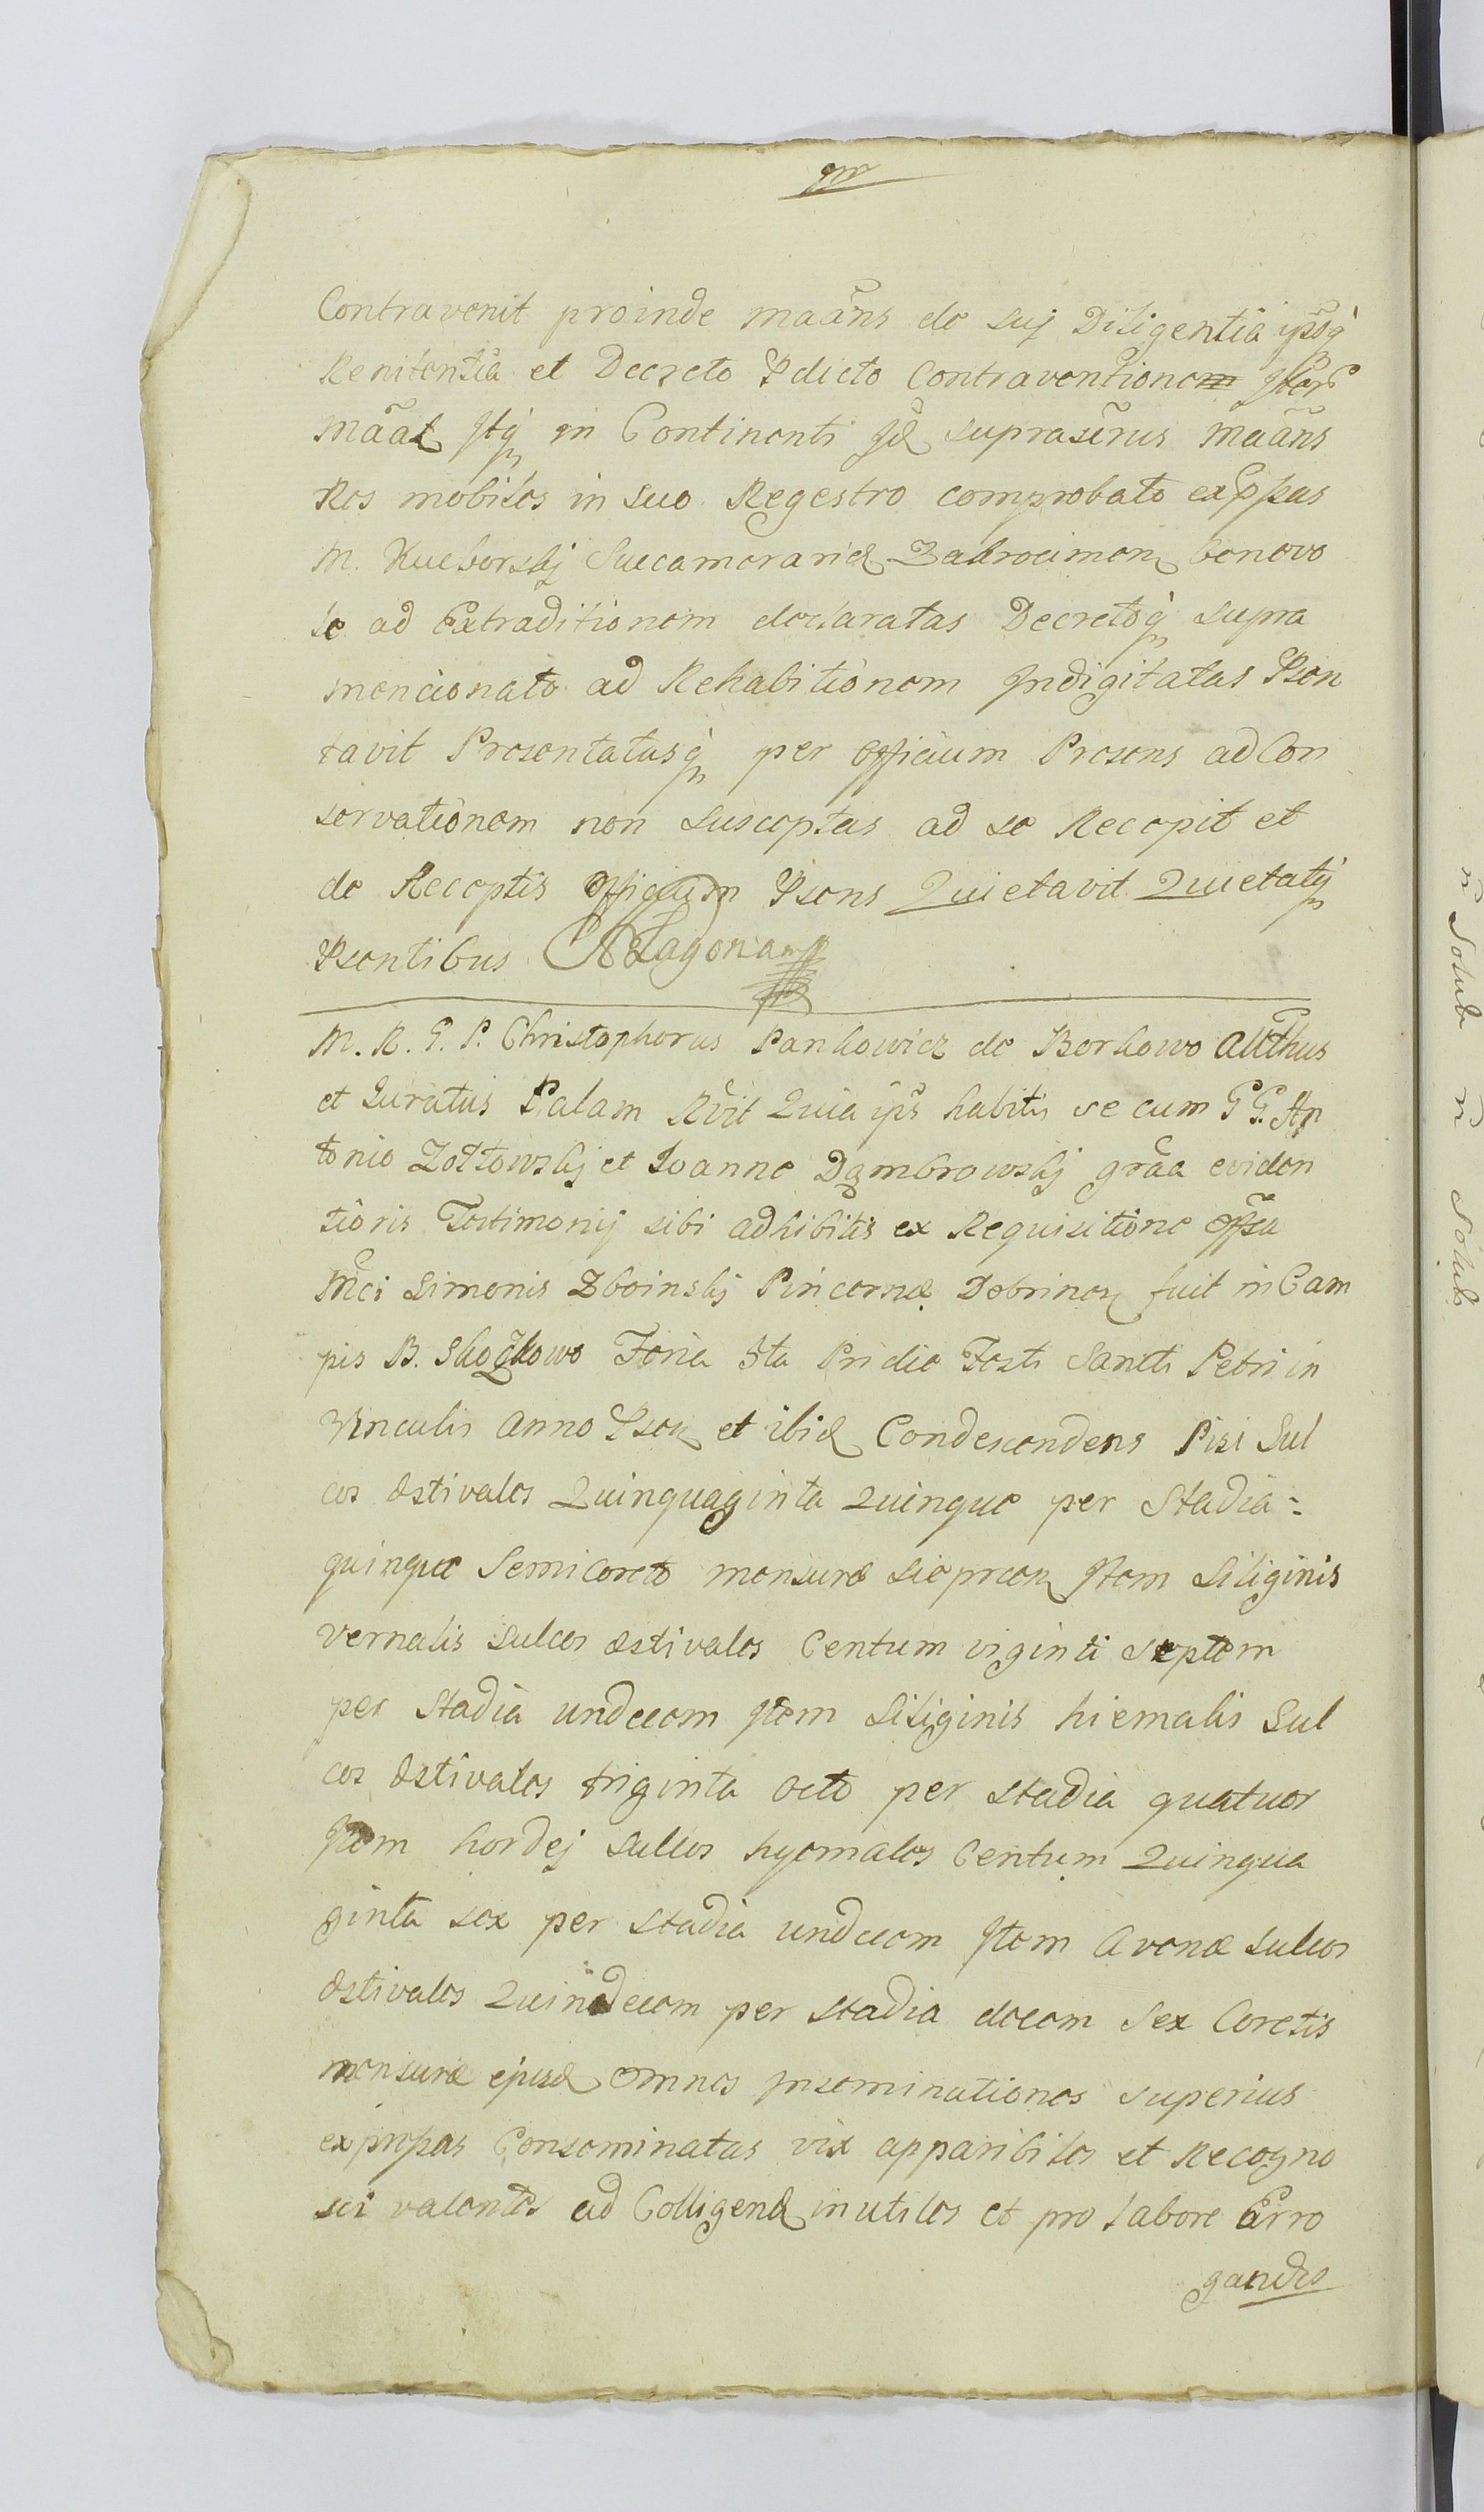 Contravenit proinde maãns de suj Diligentia ipsoq̃
Renitentia et Decreto Pdicto Contraventionem
in Continenti supraserius maãns
Res mobiles in suo Regestro comprobato exppas
M. Kucborskj Succamorarid Zakrocimen benevo
le ad Extraditionem declaratas Decretoq̃ supra
mencionato ad Rehabitionem Indigitatas Psen
tavit Presentatasq̃ per officium Presens ad Con
servationem non susceptas ad se Recepit et
de Receptis officium Psens Quietavit Quietatq̃
Psentibus Lagona
M. R. G. P. Christophorus Pankowicz de Borkowo Autthus
et Juratus Palam Rvit Quia ips habitis secum GG. An
tonio Zołtowskj et Joanne Dąmbrowskj grãa eviden
tioris Testimonij sibi adhibitis ex Requisitione
Mci Simonis Zboinskj Pincernæ Dobrinen fuit in Cam
pis B. Feria 5ta Pridie Festi Sancti Petri in
Vinculis Anno Psen et ibid Condescendens Pisi Sul
cos æstivales Quinquaginta Quinque per Stadia =
quinque Semicoreto mensuræ Sieprcen Item Siliginis
vernalis sulcos æstivales Centum viginti septem
per Stadia undecem Item Siliginis hiemalis Sul
cos æstivales triginta octo per stadia quatuor
Item hordej sulcos hyemales Centum Quinqua
ginta sex per stadia undecem Item Avenæ sulcos
æstivales Quindecem per stadia decem Sex Coretis
mensuræ ejusd omnes Inseminationes superius
exprpas Conseminatas vix apparibiles et Recogno
sci valentes ad Colligend inutiles et pro labore Erro
gandis